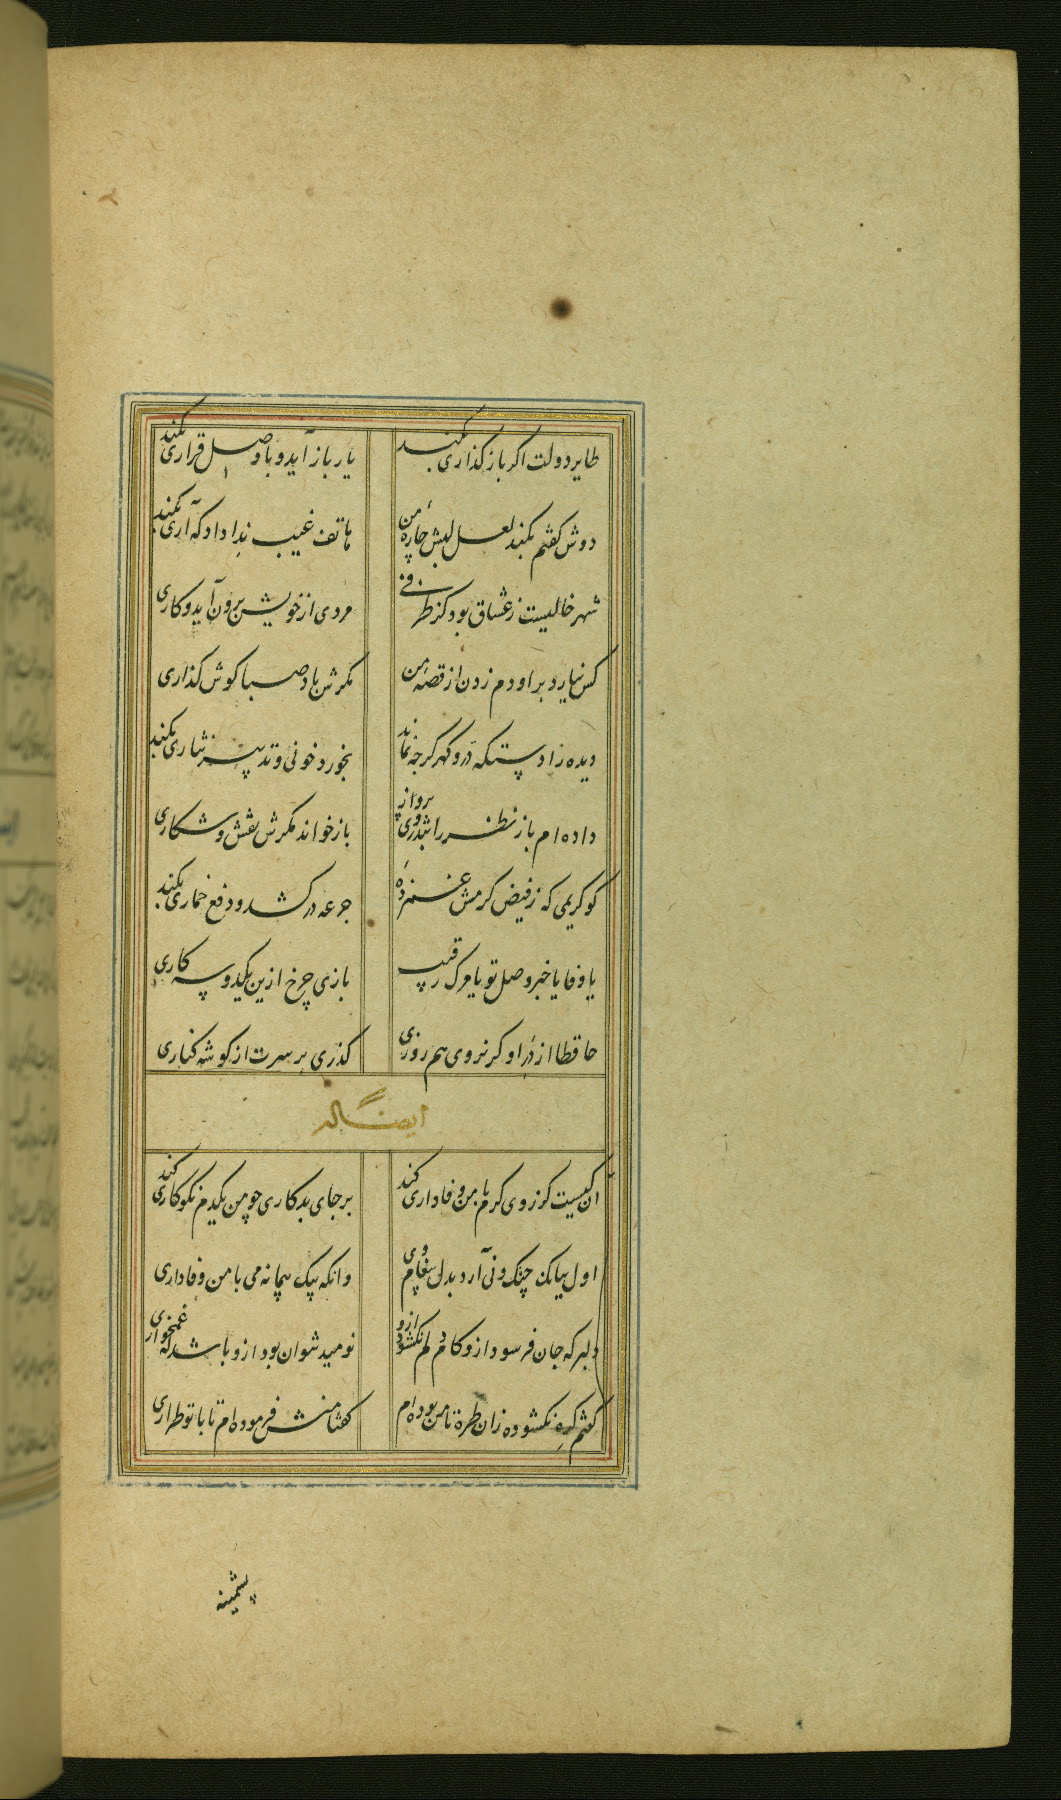 طایر دولت اکر باز کذاری بکند یار باز آید و با وصل قراری بکند
دوش کفتم بکند لعل لبش چاره من هاتف غیب ندا داد که آری بکند
شهر خالیست ز عشاق بود کز طرفی مردی از خویش برون آید و کاری
کس نیارد بر او دم زدن از قصه من مکرش باد صبا کوش کذاری
دیده را دستکه در و کهر کرچه نماند بخورد خونی و تدبیر نثاری بکند
داده ام باز نظر را بتذروی پرواز باز خواند مکرش نقش و شکاری
کو کریمی که ز فیض کرمش غمزده جرعه درکشد و دفع خماری بکند
یا وفا یا خبر وصل تو یا مرک رقیب بازی چرخ ازین یکدو سه کاری
حافظا از در او کر نروی هم روزی کذری بر سرت از کوشه کناری
ایضا له
آن کیست کز روی کرم با من وفاداری کند بر جای بدکاری چو من یکدم نکوکاری کند
اول ببانک چنک و نی آرد بدل پیغام وی وانکه بیک پیمانه می با من وفاداری
دلبر که جان فرسود ازو کام دلم نکشود ازو نومید نتوان بود ازو باشد که غمخواری
کفتم کره نکشوده زان طره تا من بوده ام کفتا منش فرموده ام تا با تو طراری
پشمینه